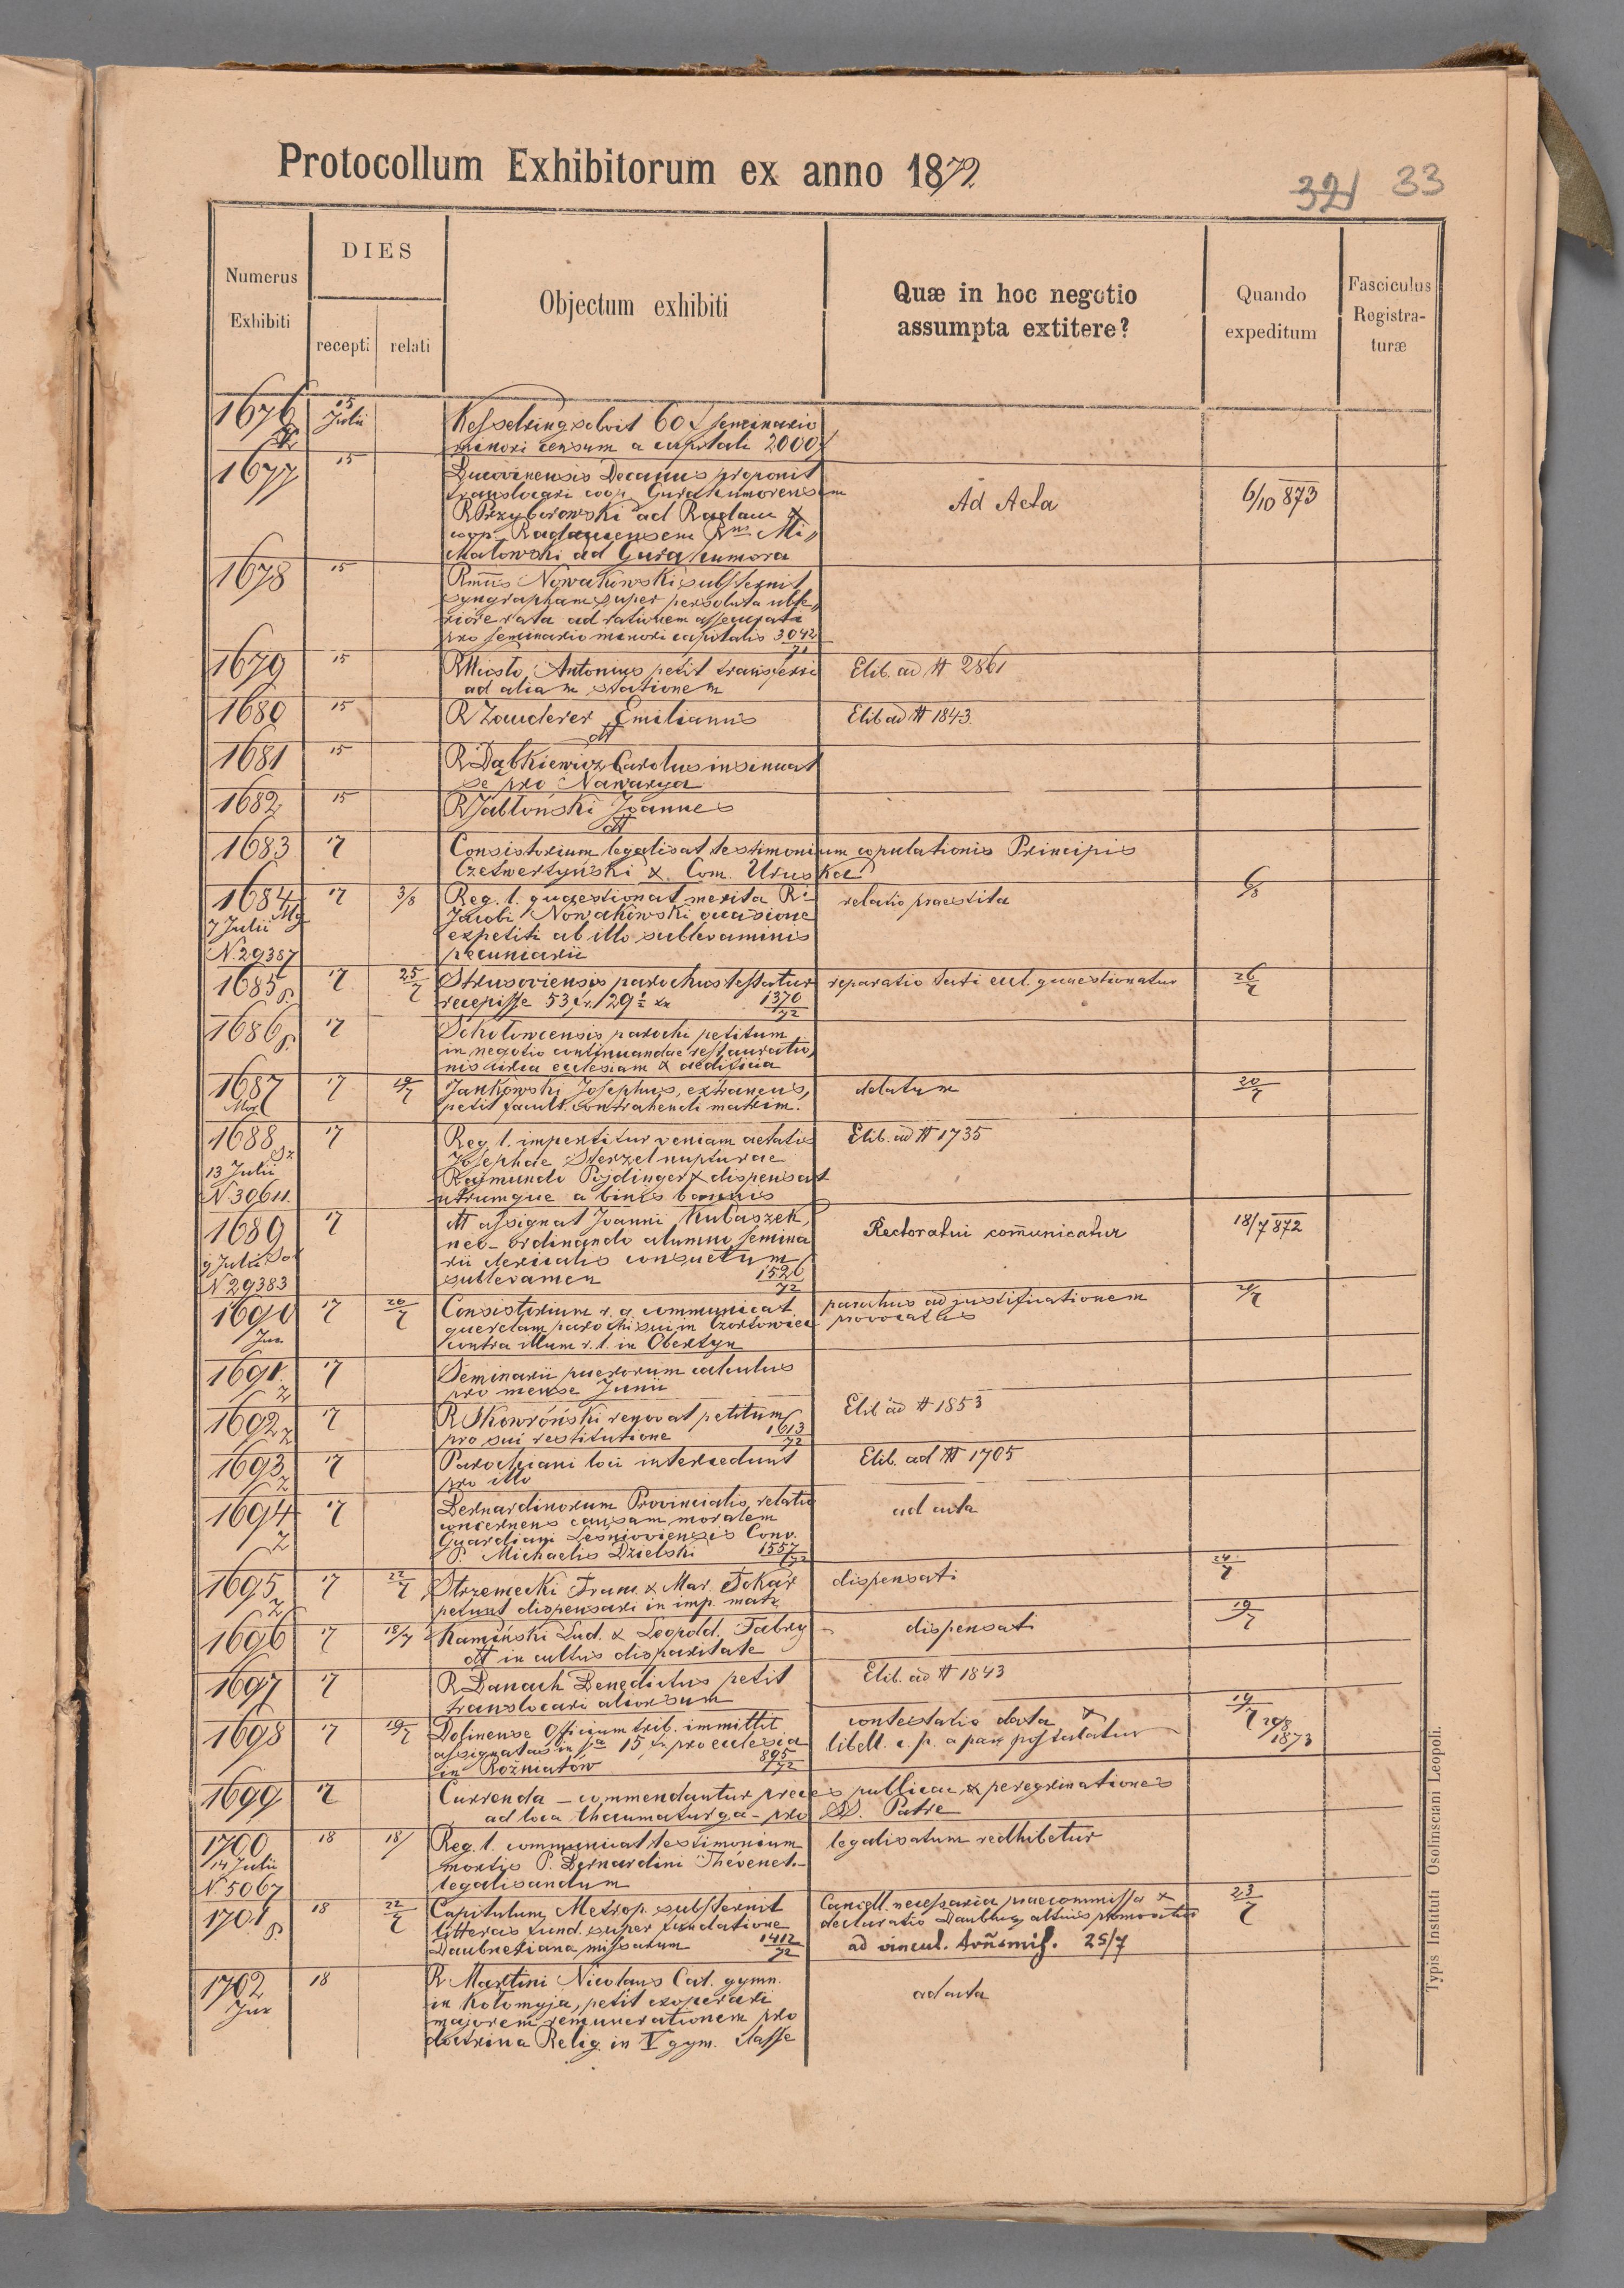 Protocollum Exhibitorum ex anno 1872
321 33
Numerus Exhibiti
DIES
recepti relati
Objectum exhibiti
Quæ in hoc negotio assumpta extitere?
Quando expeditum
Fasciculus Registra-turæ
1676 15 Julii Kesselring solvit 60 f seminario
minori censum a capitali 2000 f
1677 15 Bucovinensis Decanus proponit
translocari coop. Gurahumorensem
R Przyborowski ad Radautz & Ad Acta 6/10 873
coop. Radaucensem Rm Mi„
chalowski ad Gura humora
1678 15 Rmus Nowakowski substernit
syngrapham super persoluta ulte„
riore rata ad rationem assecurati
pro seminario minori capitalis 3042/71
1679 15 R Miosło Antonius petit transferri Elib. ad # 2861
ad aliam stationem
1680 15 R Zauderer Emilianus Elib ad # 1843.
dt
1681 15 R Dąbkiewicz Carolus insinuat
se pro Nawarya
1682 15 R Jabłoński Joannes
dt
1683 17 Consistorium legalisat testimonium copulationis Principis
Czetwertyński & Com. Uruska
1684 17 3/8 Reg. l. quaestionat merita Ri relatio praestita 6/8
7 Julii Jacobi Nowakowski occasione
expetiti ab illo sublevaminis
N. 29387 pecuniarii
1685 p. 17 25/7 Strusoviensis parochus testatur reparatio tecti eccl. quaestionatur 26/7
recepisse 53 fr. 29½ xr 1370/72
1686 p. 17 Sokołowcensis parochi petitum
in negotio continuandae restauratio„
nis circa ecclesiam & aedificia
1687 17 19/7 Jankowski Josephus, extraneus, delatum 20/7
petit facult. contrahendi matrim.
1688 17 Reg. l. impertitur veniam aetatis Elib. ad # 1735
13 Julii Josephae Sterzel nupturae
Rajmundo Pojdinger & dispensat
N. 30611. utrumque a binis bannis
1689 17 dt assignat Joanni Kubaszek, Rectoratui communicatur 18/7 872
neo-ordinando alumno semina
9 Julii rii clericalis consuetum
N 29383 sublevamen 1526/72
1690 17 20/7 Consistorium r. g. communicat parochus ad justificationem 21/7
Jur querelam parochi sui in Czortowiec provocatus
contra illum r. l. in Obertyn
1691. 17 Seminarii puerorum calculus
z pro mense Junii
1692 z 17 R Skowroński renovat petitum Elib ad # 1853
pro sui restitutione 1613/72
1693 z 17 Parochiani loci intercedunt Elib. ad # 1705
pro illo
1694 17 Bernardinorum Provincialis relatio ad acta
concernens causam moralem
Guardiani Leśnioviensis Conv.
z P. Michaelis Dzielski 1557/72
1695 z 17 22/7 Strzemecki Franc. & Mar. Tokár dispensati 24/7
petunt dispensari in imp. matr.
1696 17 18/7 Kamiński Lud. & Leopold. Fabry dispensati 19/7
dt in cultus disparitate
1697 17 R Banach Benedictus petit Elib. ad # 1843
translocari aliorsum
1698 17 19/7 Dolinense Officium trib. immittit contestatio data & 19/7
assignatas in sa 15 fr pro ecclesia libell. c. p. a par. postulatur 29/8 1873
in Rożniatów 895/72
1699 17 Currenda – commendantur preces publicae & peregrinationes
ad loca thaumaturga – pro SS. Patre
1700 18 18/ Reg. l. communicat testimonium legalisatum redhibetur
14 Julii mortis P. Bernardini Thévenet.
N. 5067 legalisandum
1701 p. 18 22/7 Capitulum Metrop. substernit Cancell. necessaria praecommissa & 23/7
litteras fund. super fundatione declaratio altius promovetur
Daubnetiana missarum 1412/72 ad vincul. 25/7
1702 18 R Martini Nicolaus Cat. gymn. ad acta
Jur in Kołomyja, petit exoperari
majorem remunerationem pro
doctrina Relig. in V gym. classe
Typis Instituti Osolinsciani Leopoli.